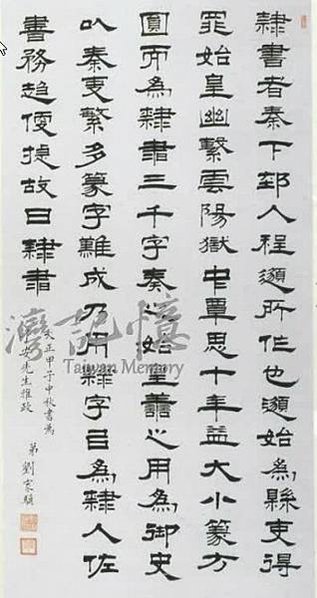 隸書者秦下邽人程邈所作也邈始為縣吏得
罪始皇幽繫雲陽獄中覃思十年益大小篆方
圓而為隸書三千字奏之始皇善之用為御史
以秦事繁多篆字難成乃用隸字㠯為隸人佐
書務趍便捷故曰隸書
大正甲子中秋書為
安先生雅政
弟 劉家
灣記憶
Taiwan Memory